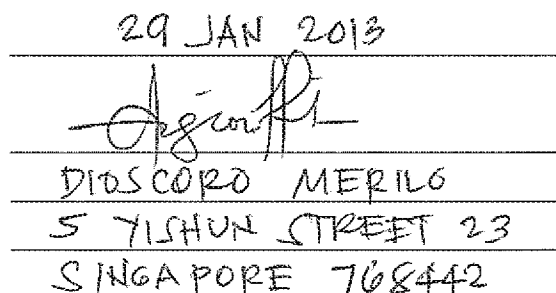 29 JAN 2013
DIOSCORO MERILO
5 YISHUN STREET 23
SINGAPORE 768442